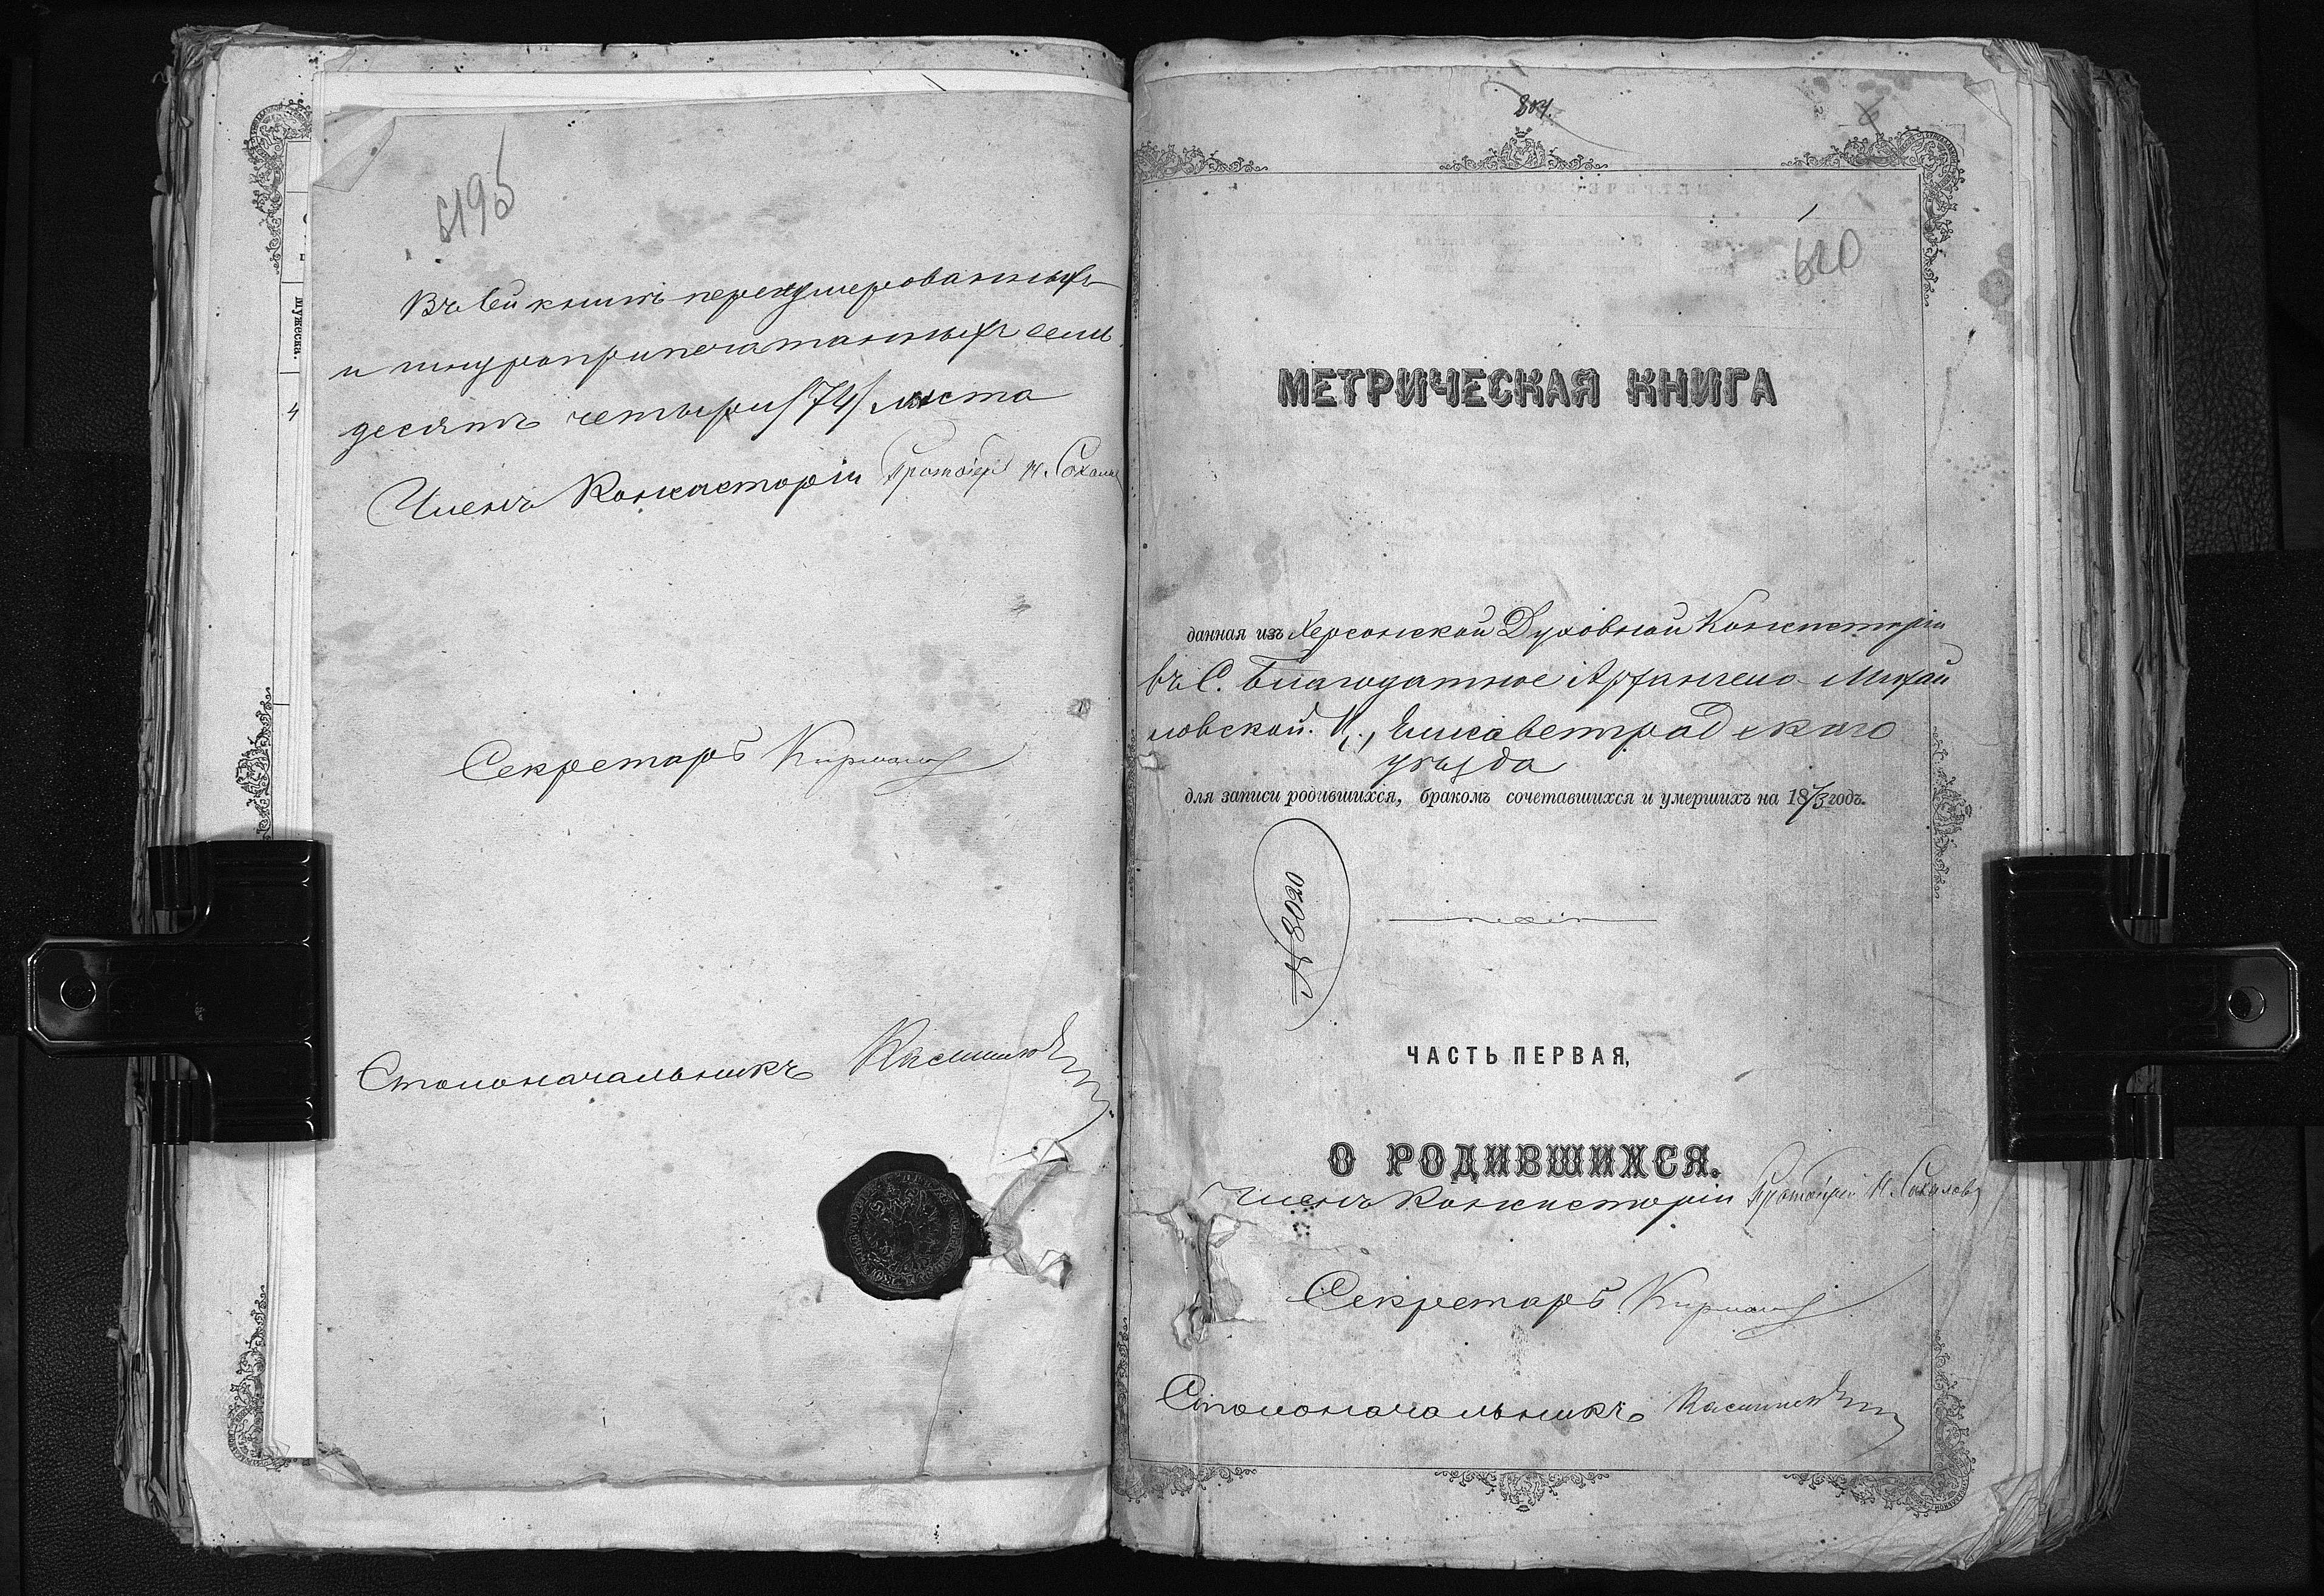 619б
Въ сей книгѣ перенумерованныхъ
и шнуроприпечатанныхъ семь
десятъ четыри /74/ листа
Членъ Консисторіи Протоіерей
Секретарь
Столоначальникъ
мужеска.
4
804.
1
620
МЕТРИЧЕСКАЯ КНИГА
данная изъ Херсонской Духовной Консисторіи
въ С. Благодатное Архангело-Михай
ловской. Ц., Елисаветградскаго
уѣзда
для записи родившихся, бракомъ сочетавшихся и умершихъ на 1873 годъ.
№ 3020
ЧАСТЬ ПЕРВАЯ,
О РОДИВШИХСЯ.
Членъ Консисторіи Протоіерей
Секретарь
Столоначальникъ